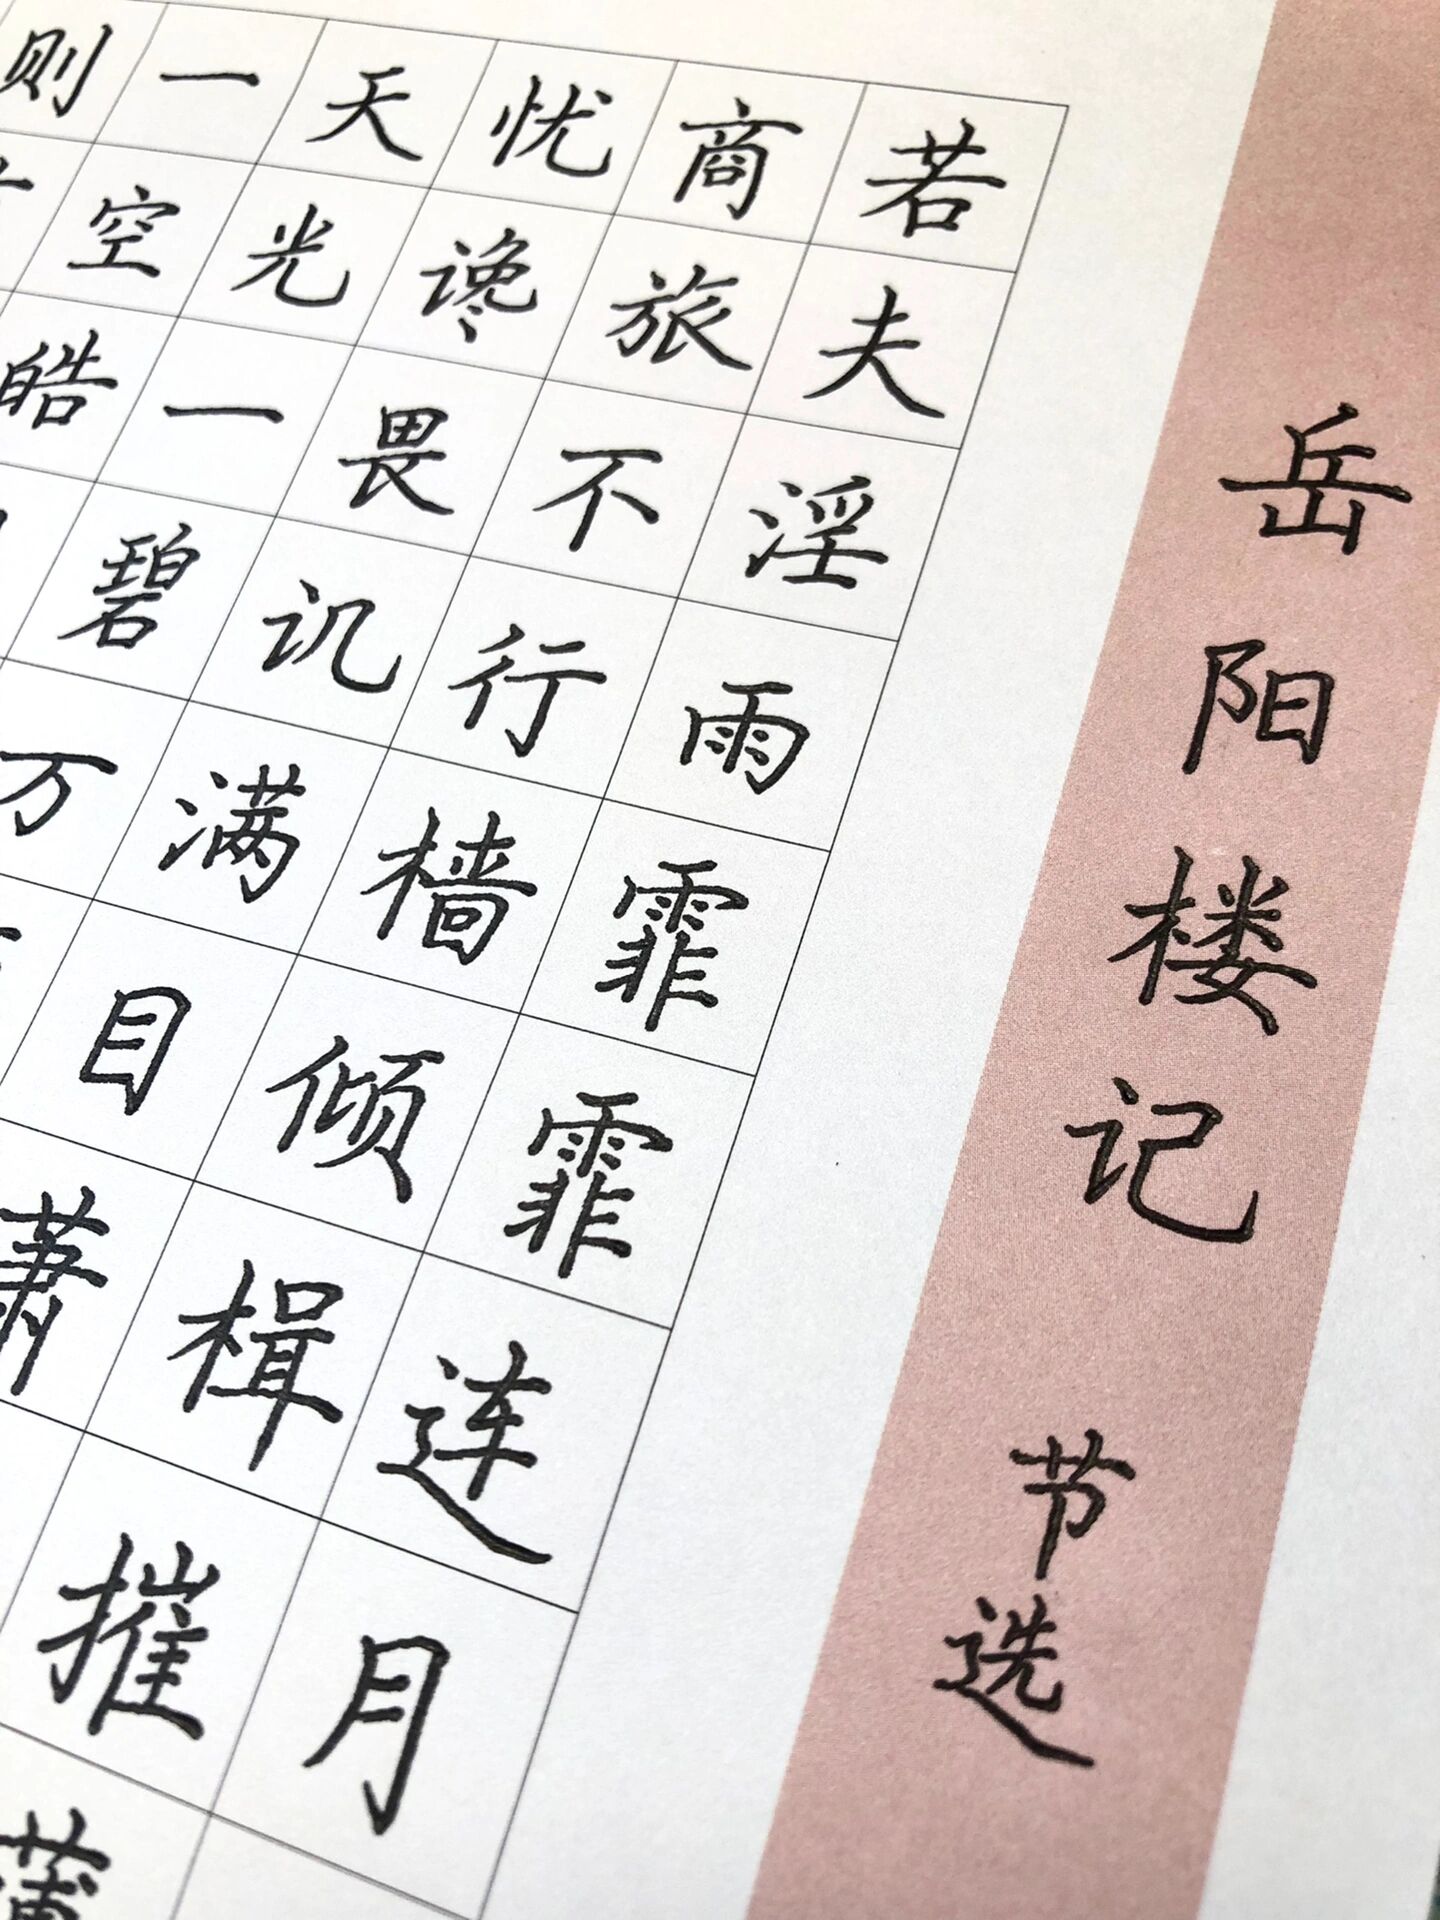 岳阳楼记 节选
若夫淫雨霏霏连月
商旅不行樯倾楫摧薄
忧谗畏讥满目萧
天光一碧万
一空皓
则